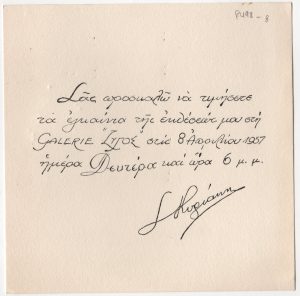 P498-8
Σᾶς προσκαλῶ νὰ τιμήσετε
τὰ ἐγκαίνια τῆς ἐκθέσεώς μου στὴ
GALERIE "ΖΥΓΟΣ" στὶς 8 Ἀπριλίου 1957
ἡμέρα Δευτέρα καὶ ὥρα 6 μ.μ.